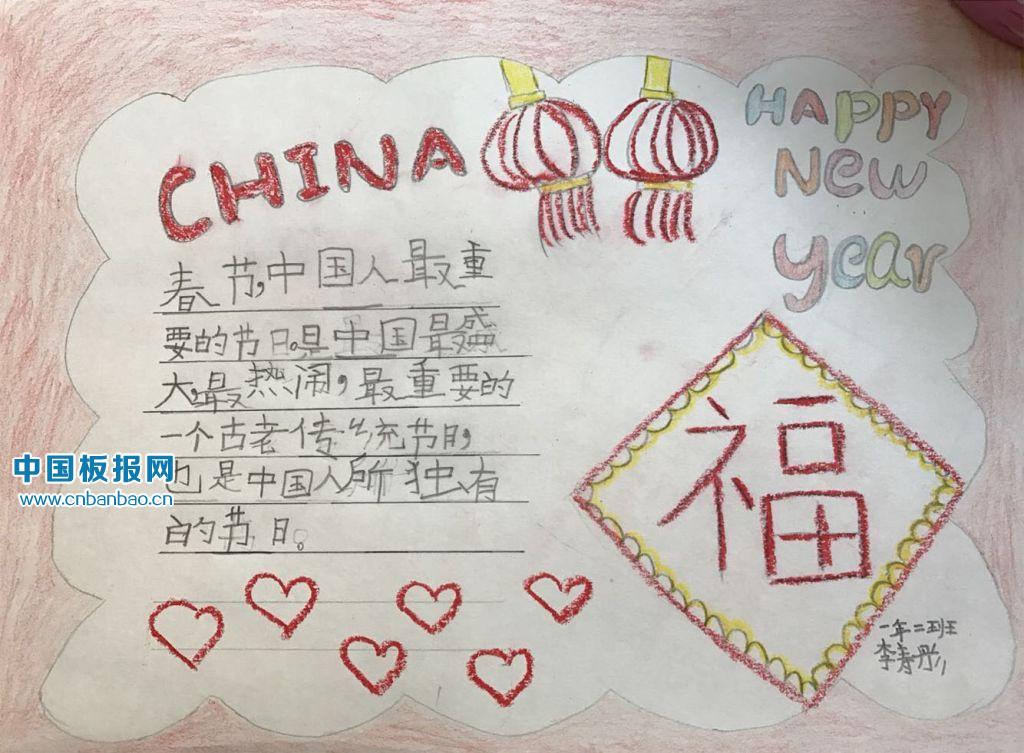 CHINA
HAPPY
New
year
春节,中国人最重
要的节日。是中国最盛
大,最热闹,最重要的
一个古老传统节日,
也是中国人所独有
的节日。
福
中国板报网
www.cnbanbao.cn
一年二班